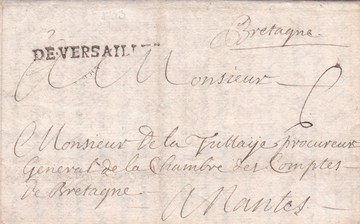 Bretagne
DE VERSAILLE
A Monsieur
Monsieur De la Tullaÿe procureur
General de la Chambre des Comptes
de Bretagne.
A Nantes.